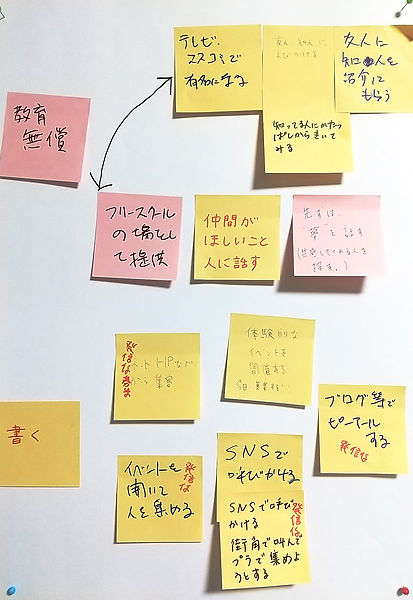 テレビ.
マスコミで
有名になる
友人 知人 に
よびかける
友人に
知人を
紹介して
もらう
知ってる人にかたっ
ぱしからきいて
みる
教育
無償
フリースクール
の場とし
て提供
仲間が
ほしいこと
人に話す
先ずは、
"夢"を話す
(共感してくれる人を
探す。)
HPなど
集客
体験的な
イベントを
開催する
ブログ等で
ピーアール
する
発信な
書く
イベントを
開いて
人を集める
発信な
SNSで
呼びかける
SNSで呼び
かける
発信な
街角で叫んで
プラで集めよ
うとする